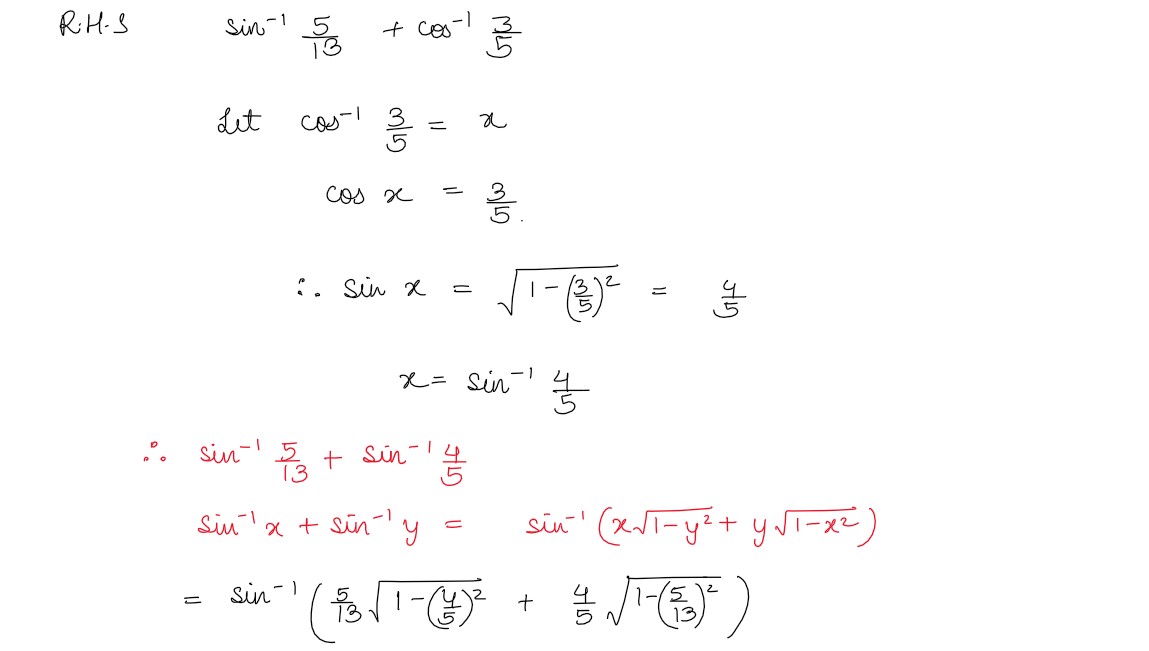 R.H.S sin⁻¹ 5/13 + cos⁻¹ 3/5
Let cos⁻¹ 3/5 = x
cos x = 3/5.
∴ sin x = √(1-(3/5)²) = 4/5
x = sin⁻¹ 4/5
∴ sin⁻¹ 5/13 + sin⁻¹ 4/5
sin⁻¹ x + sin⁻¹ y = sin⁻¹ (x√(1-y²) + y√(1-x²))
= sin⁻¹ (5/13 √(1-(4/5)²) + 4/5 √(1-(5/13)²))